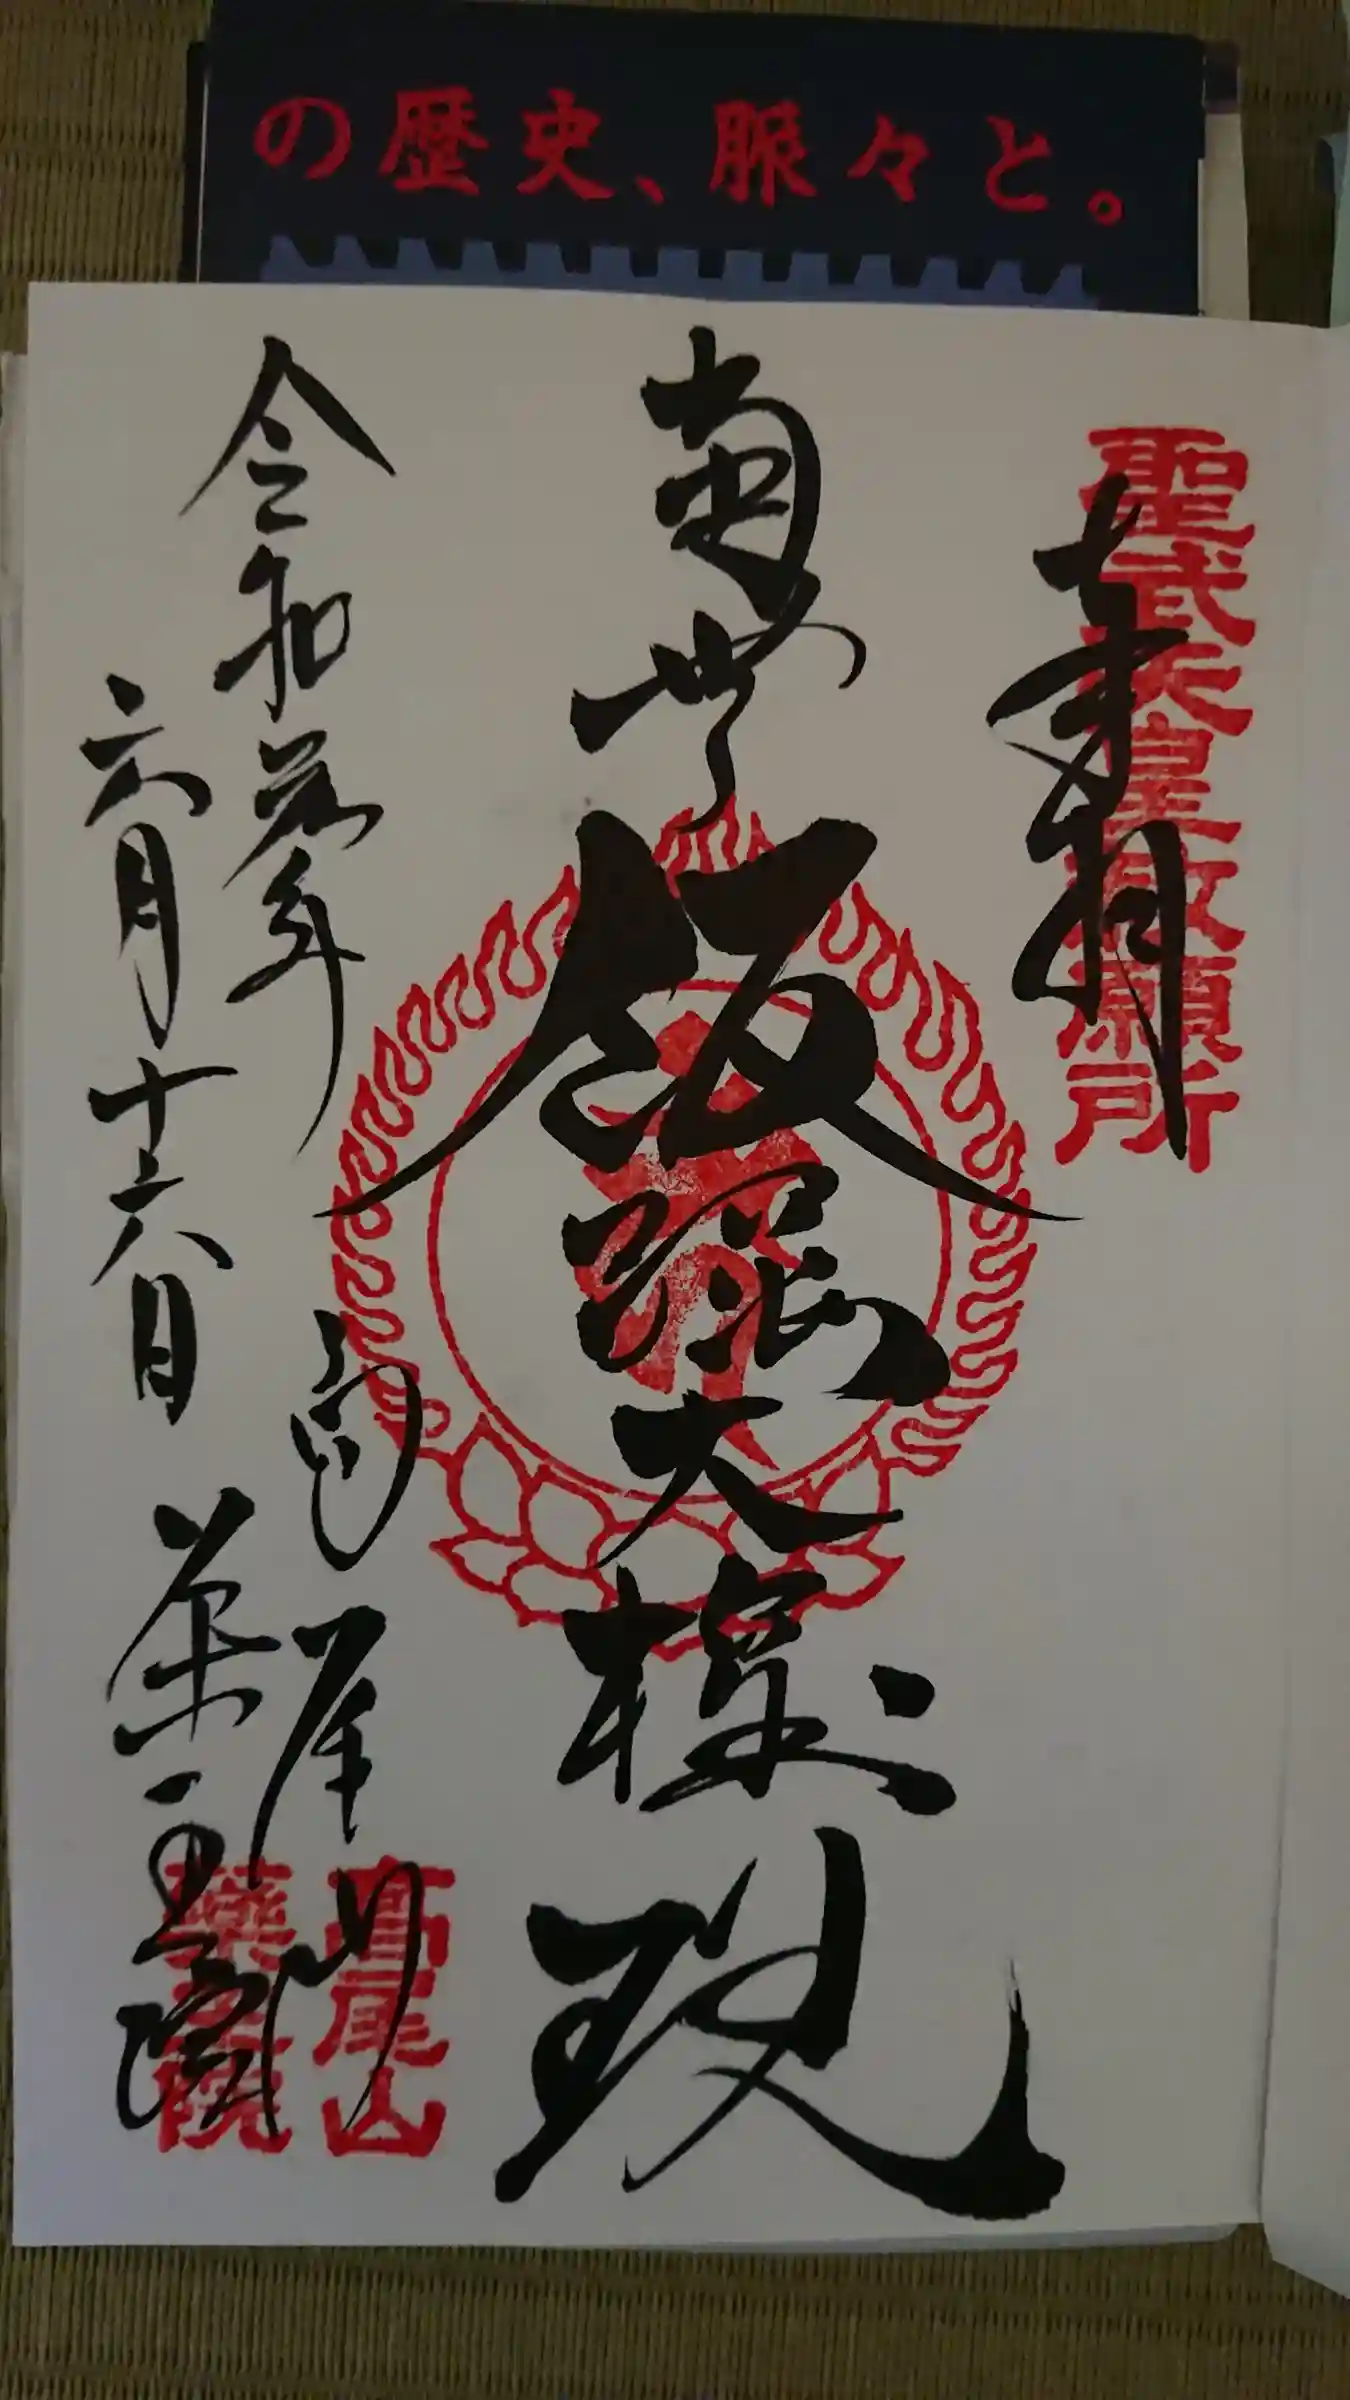 の歴史、脈々と。
聖武天皇敕願所
奉拝
南無飯縄大権現
令和元年
六月十六日
高尾山
薬王院
高尾山
薬王院